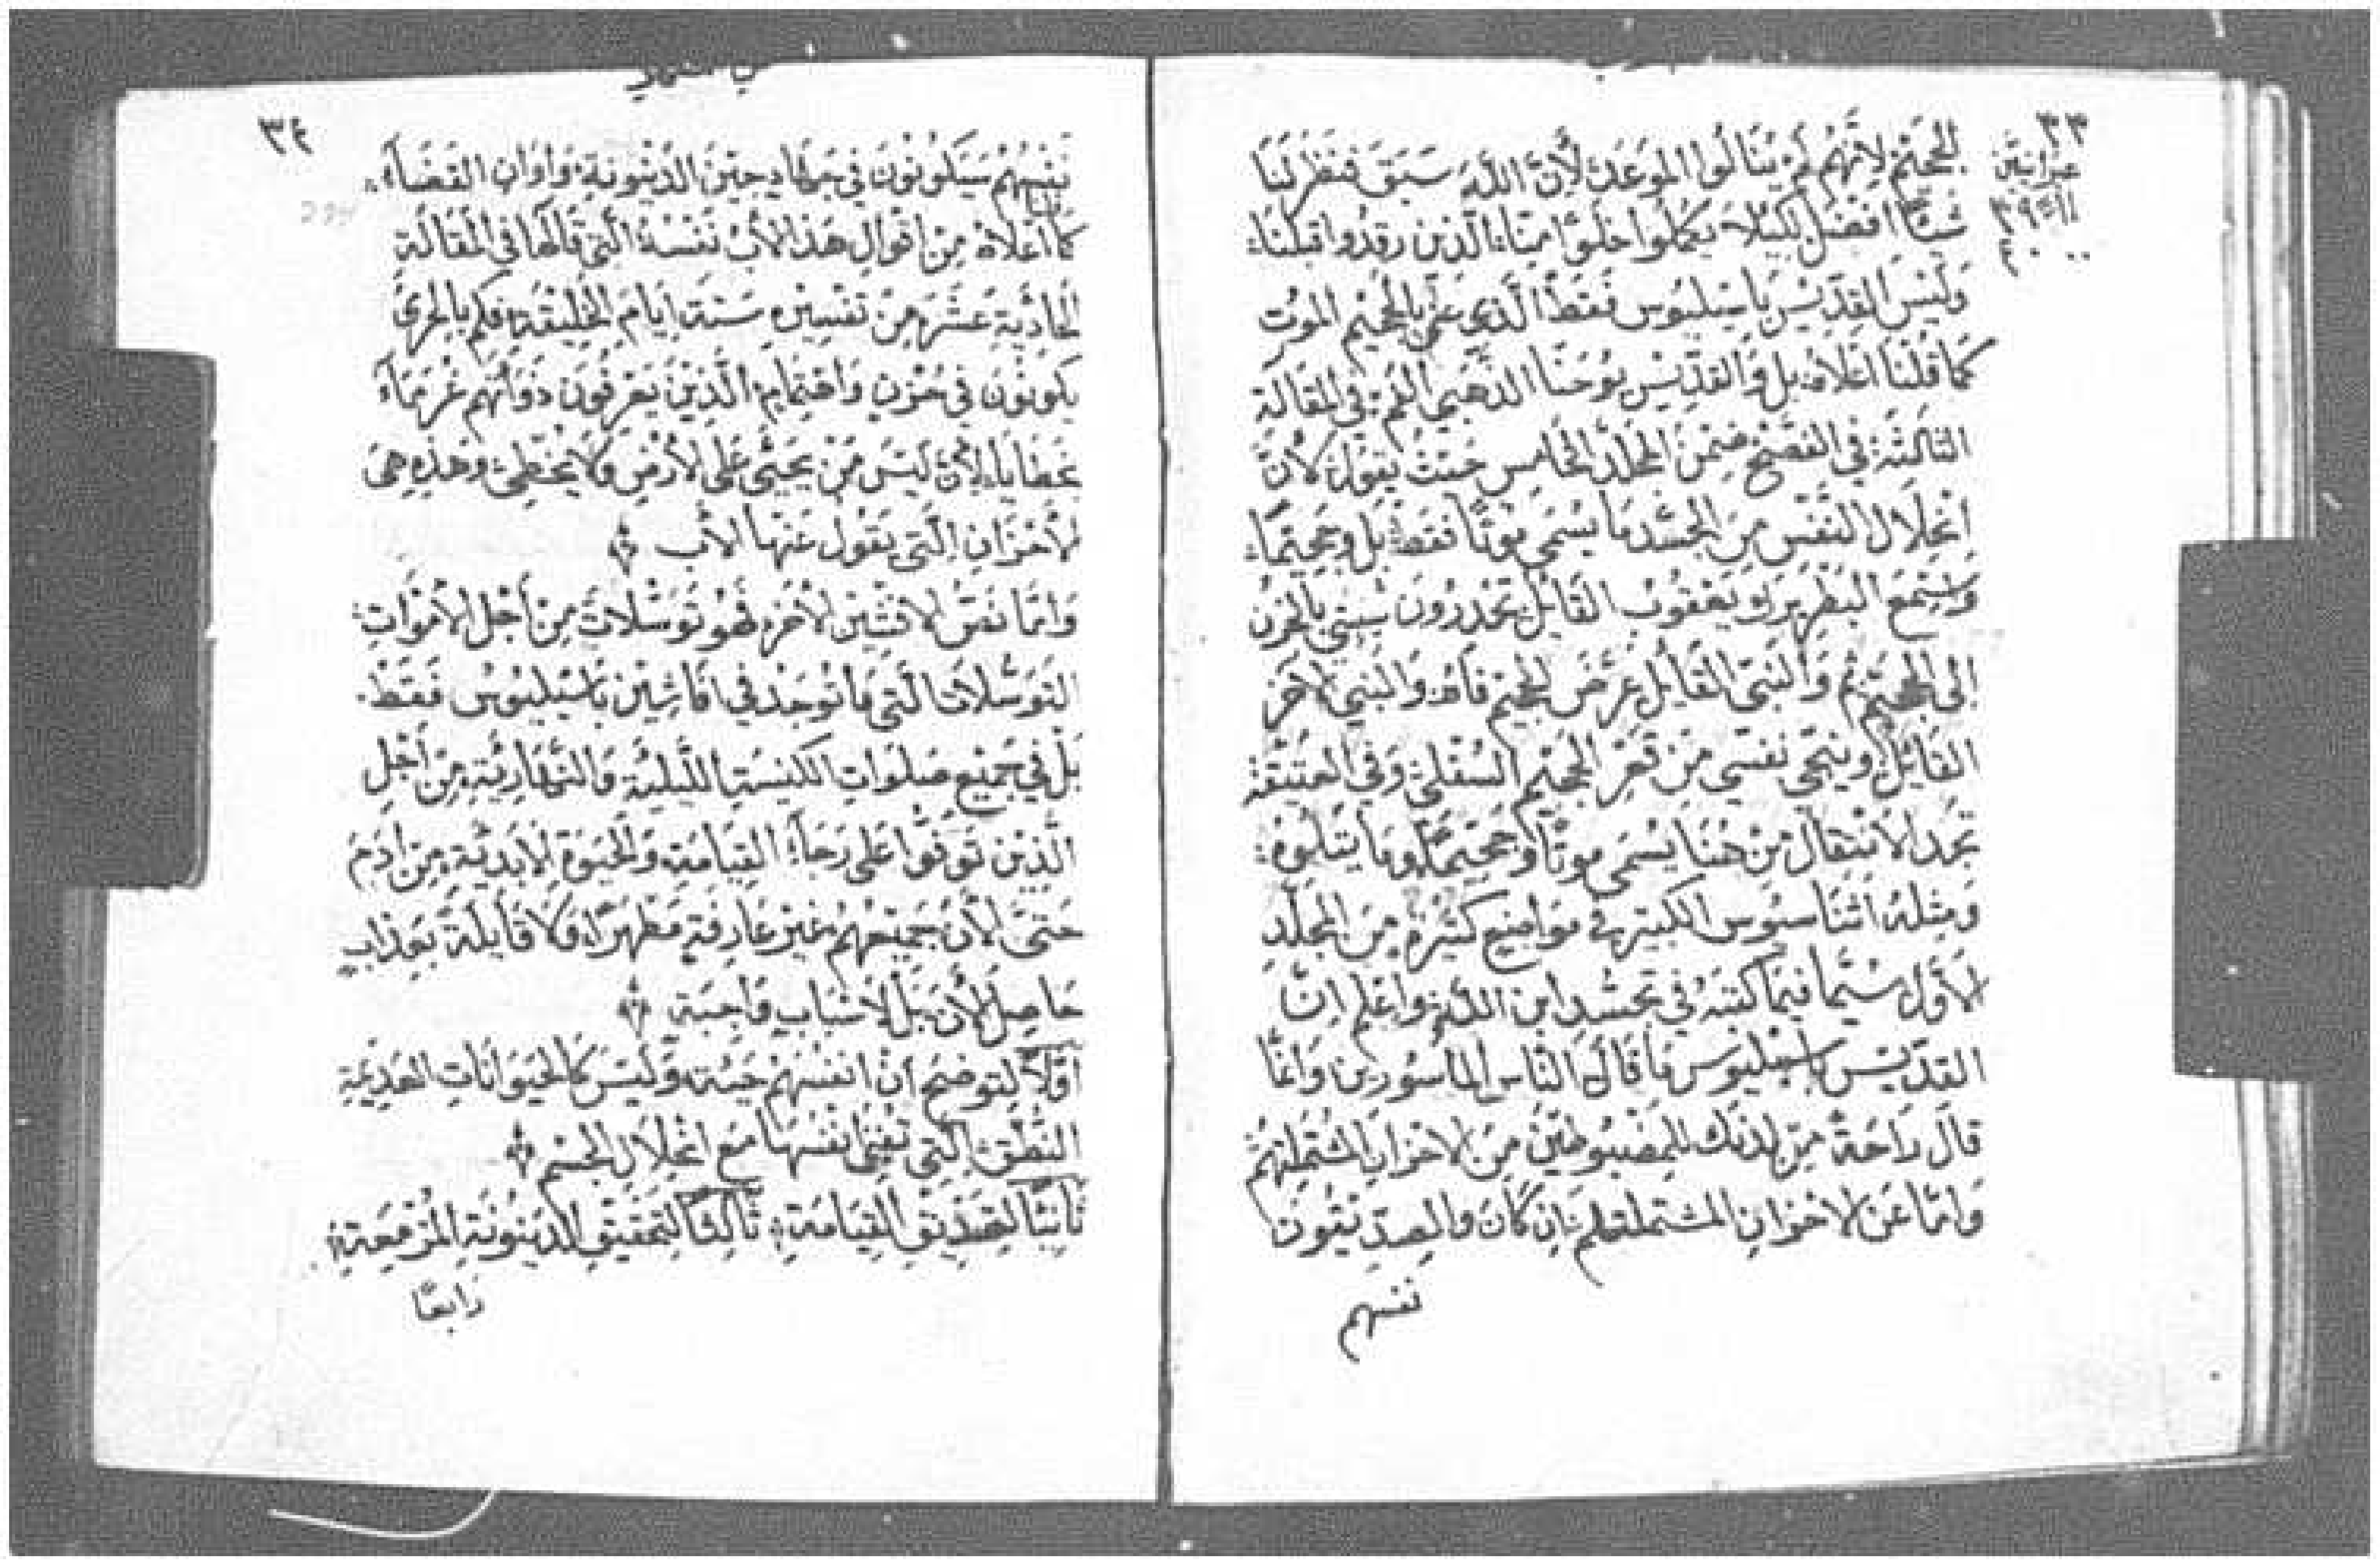 ٣٣
عبرانيين
٣٩
الجحيم لانهم لم ينالوا الموعد لأن الله سبق فنظر لنا
شيئاً افضل لكيلا يكملوا خلوًا منا الذين رقدوا قبلنا
وليس القديس باسيليوس فقط الذي عنى بالجحيم الموت
كما قلنا اعلاه بل والقديس يوحنا الذهبي الفم في المقالة
الثالثة في الفصح ضمن المجلد الخامس حيث يقول لأن
انحلال النفس من الجسد ما يسمى موتاً فقط بل وجحيماً
واستمع البطريرك يعقوب القائل تحدرون شيبتي بالحزن
الى الجحيم والنبي القائل عرض الجحيم فاه والنبي الاخر
القائل وينجي نفسي من قعر الجحيم السفلى وفي العتيقة
تجد الانتقال من هنا يسمى موتاً وجحيماً وما يتلوه
ومثله اثناسيوس الكبير في مواضع كثيرة من المجلد
الأول سيما فيما كتبه في تجسد ابن الله واعلم ان
القديس باسيليوس ما قال الناس المأسورين وانما
قال راحة من لدنك للمضبوطين من الاحزان المشتملتهم
واما عن الاحزان المشتملتهم ان كان والصديقون
نفسهم
٣٤
نفسهم سيكونون في جهاد حين الدينونة واوان القضاء
كما اعلاه من اقوال هذا الأب نفسه التي قالها في المقالة
الحادية عشر من تفسيره ستة ايام الخليقة فكم بالحرى
يكونون في حزن واهتمام الذين يعرفون ذواتهم غرماء
بخطايا لأن ليس من يحيى على الأرض ولا يخطئ وهذه هي
الأحزان التي يقول عنها الأب
واما نص الاثنين الاخر فهو توسلات من أجل الأموات
التوسلات التي ما توجد في افاشين باسيليوس فقط
بل في جميع صلوات الكنيسة الليلية والنهارية من أجل
الذين توفوا على رجاء القيامة والحيوة الابدية من ادم
حتى الأن جميعهم غير عارفة مطهرًا ولا قايلة بعذاب
حاصل الأن بل لأسباب واجبة
أولاً لتوضح أن انفسهم حية وليس كالحيوانات العديمة
النطق التي تفنى نفسها مع انحلال الجسم
ثانيًا لتصديق القيامة ثالثًا لتحقيق الدينونة المزمعة
رابعًا